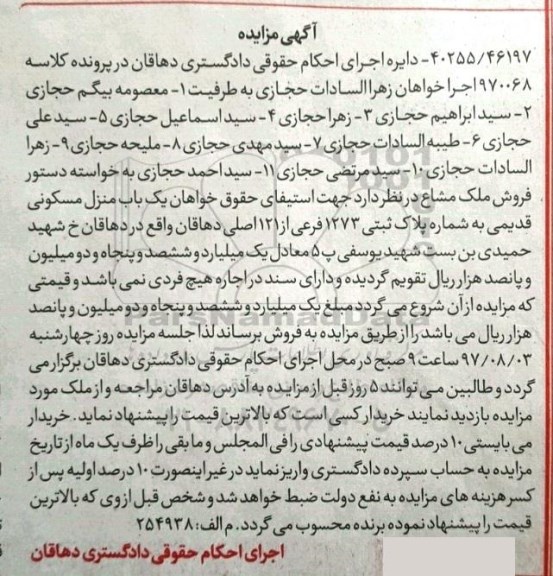 آگهی مزایده
۴۰۲۵۵/۴۶۱۹۷- دایره اجرای احکام حقوقی دادگستری دهاقان در پرونده کلاسه
۹۷۰۰۶۸ اجرا خواهان زهرا السادات حجازی به طرفیت ۱- معصومه بیگم حجازی
۲- سید ابراهیم حجازی ۳- زهرا حجازی ۴- سید اسماعیل حجازی ۵- سید علی
حجازی ۶- طیبه السادات حجازی ۷- سید مهدی حجازی ۸- ملیحه حجازی ۹- زهرا
السادات حجازی ۱۰- سید مرتضی حجازی ۱۱- سید احمد حجازی به خواسته دستور
فروش ملک مشاع در نظر دارد جهت استیفای حقوق خواهان یک باب منزل مسکونی
قدیمی به شماره پلاک ثبتی ۱۲۷۳ فرعی از ۱۲۱ اصلی دهاقان واقع در دهاقان خ شهید
حمیدی بن بست شهید یوسفی پ ۵ معادل یک میلیارد و ششصد و پنجاه و دو میلیون
و پانصد هزار ریال تقویم گردیده و دارای سند در اجاره هیچ فردی نمی باشد و قیمتی
که مزایده از آن شروع می گردد مبلغ یک میلیارد و ششصد و پنجاه و دو میلیون و پانصد
هزار ریال می باشد را از طریق مزایده به فروش برساند لذا جلسه مزایده روز چهارشنبه
۹۷/۰۸/۰۳ ساعت ۹ صبح در محل اجرای احکام حقوقی دادگستری دهاقان برگزار می
گردد و طالبین می توانند ۵ روز قبل از مزایده به آدرس دهاقان مراجعه و از ملک مورد
مزایده بازدید نمایند خریدار کسی است که بالاترین قیمت را پیشنهاد نماید . خریدار
می بایستی ۱۰ درصد قیمت پیشنهادی را فی المجلس و مابقی را ظرف یک ماه از تاریخ
مزایده به حساب سپرده دادگستری واریز نماید در غیر اینصورت ۱۰ درصد اولیه پس از
کسر هزینه های مزایده به نفع دولت ضبط خواهد شد و شخص قبل از وی که بالاترین
قیمت را پیشنهاد نموده برنده محسوب می گردد. م الف: ۲۵۴۹۳۸
اجرای احکام حقوقی دادگستری دهاقان